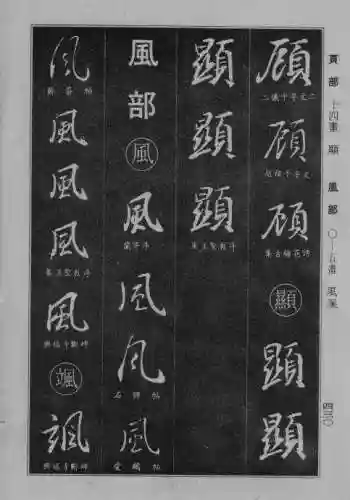 頁部 十四畫 顯 風部 〇—五畫 風颯
四三〇
顧
二儀千字文二
顧
趙禎千字文
顧
集古梅花詩
顯
顯
顯
顯
顯
顯
集王聖教序
風部
風
風
蘭亭序
風
風
石師帖
風
愛鵝帖
風
風
風
風
集王聖教序
風
興福寺斷碑
颯
颯
興福寺斷碑